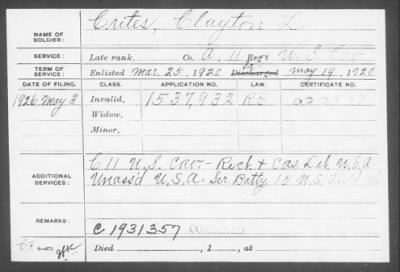 NAME OF SOLDIER: Crites, Clayton L.
SERVICE: Late rank, Co. A, 11 Reg't U.S. Cav
TERM OF SERVICE: Enlisted Mar. 25, 1920 Discharged May 14, 1920
DATE OF FILING. CLASS. APPLICATION NO. LAW. CERTIFICATE NO.
1926 May 2 Invalid, 1537,932
Widow,
Minor,
ADDITIONAL SERVICES: C 11 U.S. Cav. - Rect. & Cas. Det. U.S.A.
Unass'd U.S.A. Ser. Batty. 15 U.S.
REMARKS: C 1931357
Died , 1 , at